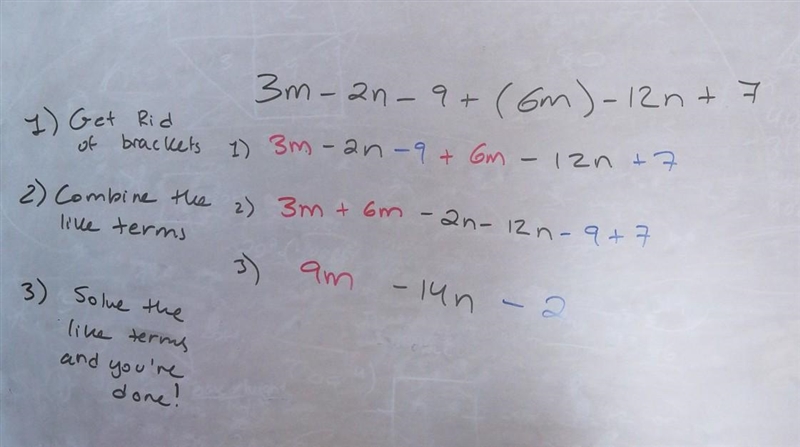 3m - 2n - 9 + (6m) - 12n + 7
1) Get Rid
of brackets
1) 3m - 2n - 9 + 6m - 12n + 7
2) Combine the
like terms
2) 3m + 6m - 2n - 12n - 9 + 7
3) 9m - 14n - 2
3) Solve the
like terms
and you're
done!